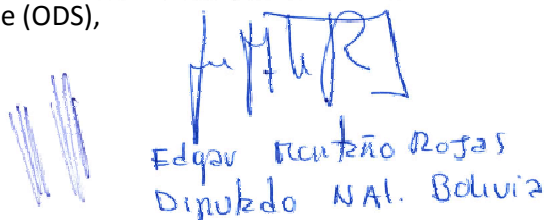 e (ODS),
Edgar Montaño Rojas
Diputado NAl. Bolivia